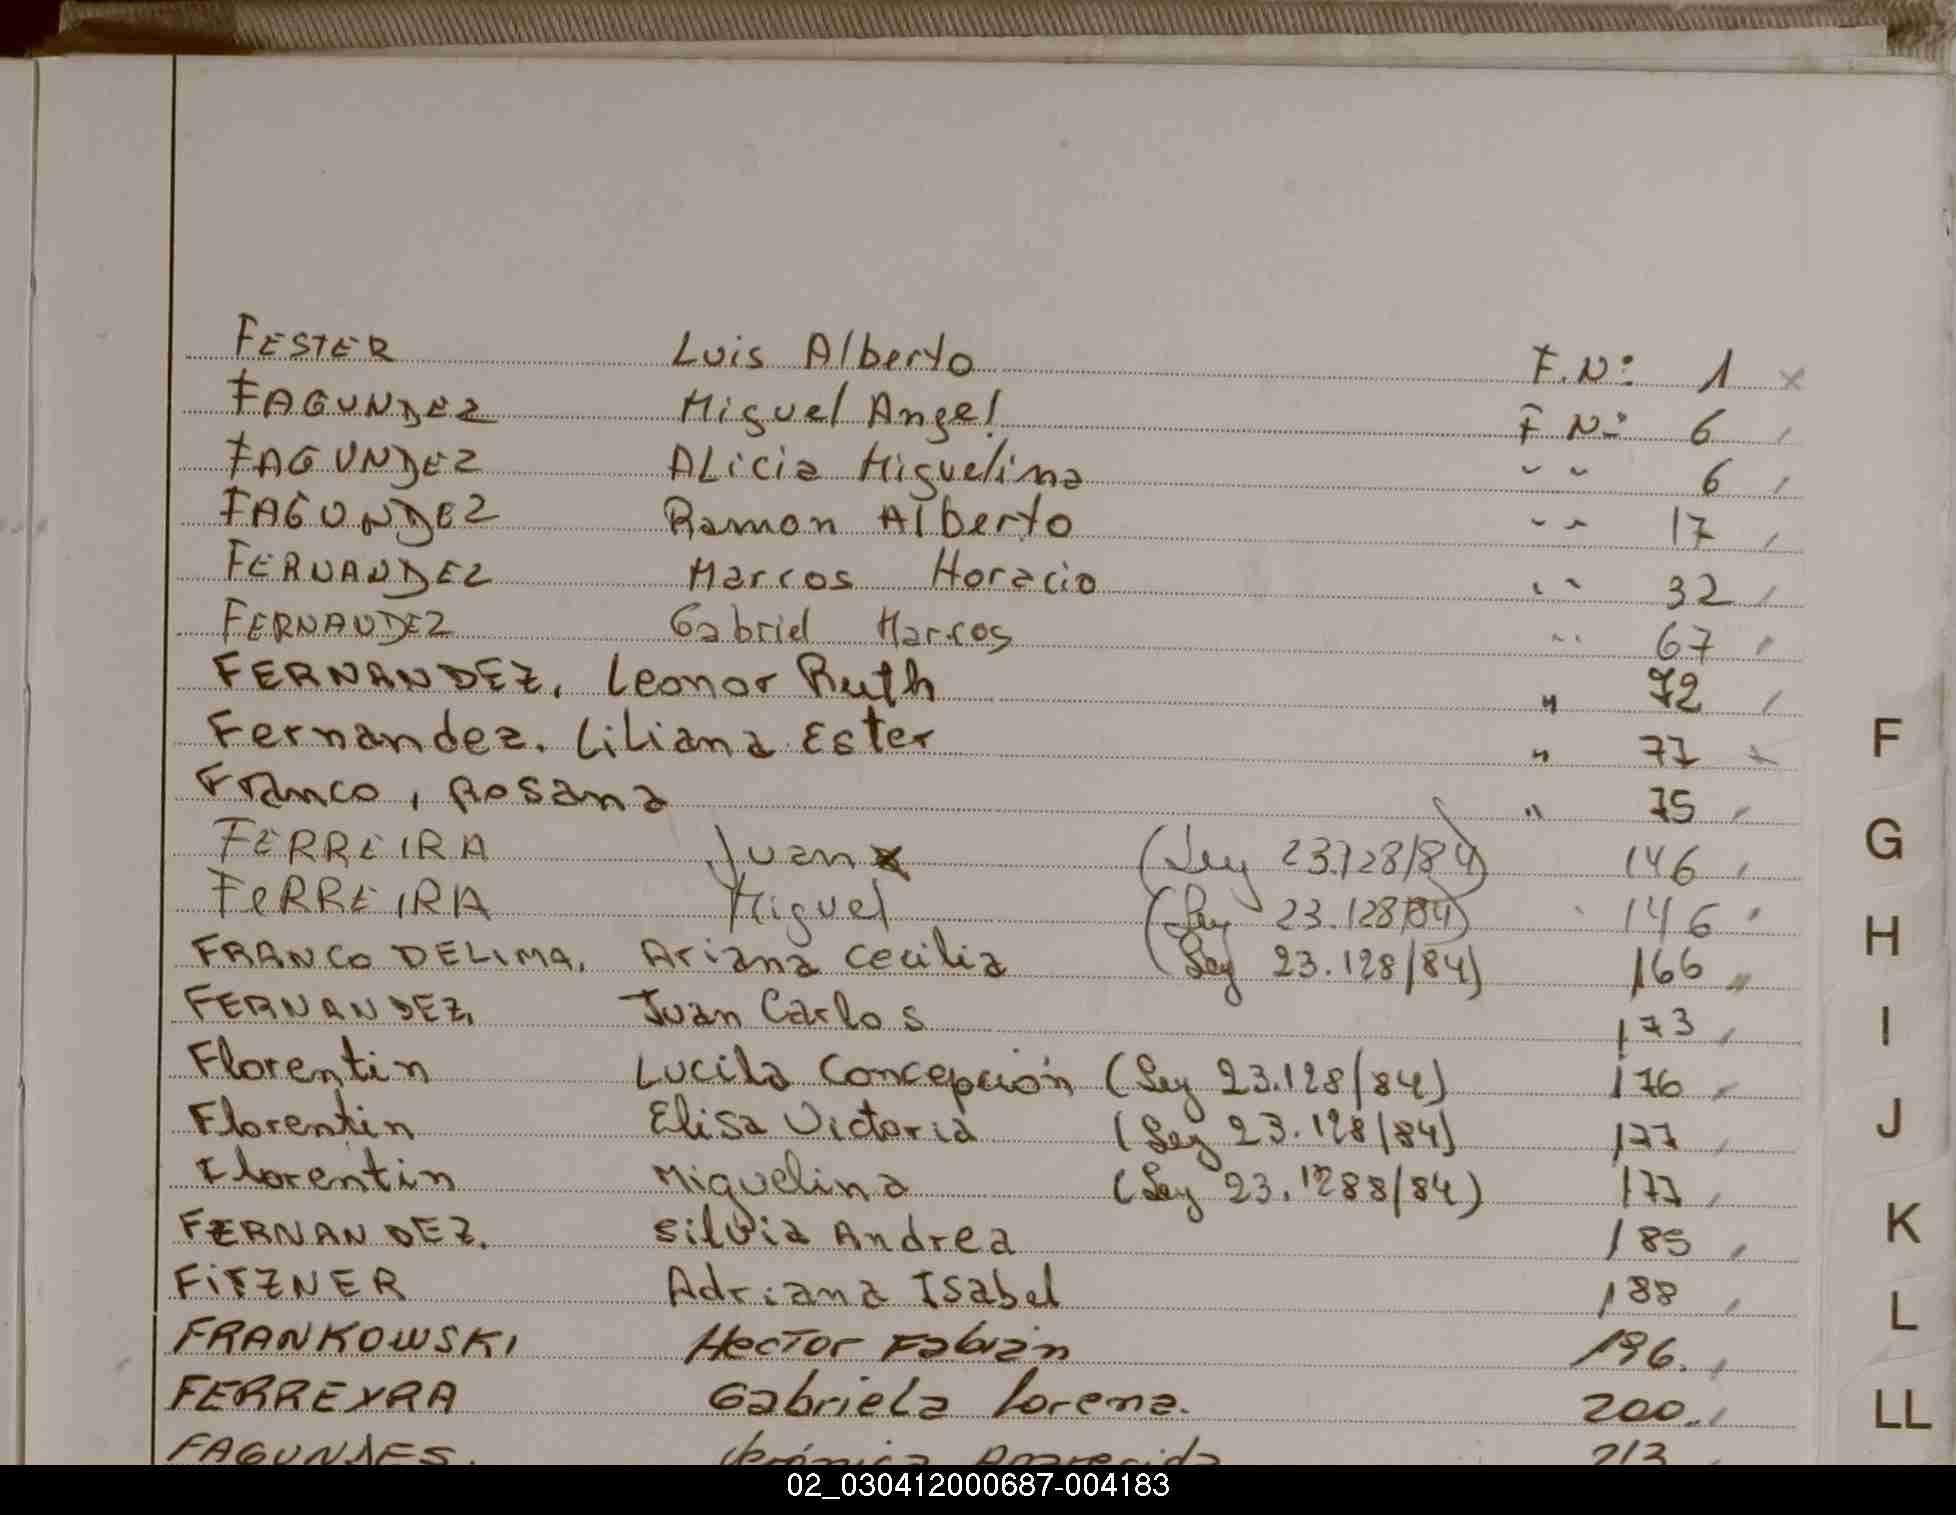 FESTER Luis Alberto F.N: 1 x
FAGUNDEZ Miguel Angel F N: 6
FAGUNDEZ ALicia Miguelina " " 6
FAGUNDEZ Ramon Alberto " " 17
FERNANDEZ Marcos Horacio " " 32
FERNANDEZ Gabriel Marcos " " 67
FERNANDEZ, Leonor Ruth " 72
Fernandez. Liliana Ester " 77
Franco, Rosana " 75
FERREIRA Juan (Ley 23.128/84) 146
FERREIRA Miguel (Ley 23.128/84) 146
FRANCO DELIMA, Ariana Cecilia (Ley 23.128/84) 166
FERNANDEZ, Juan Carlos 173
Florentin Lucila Concepción (Ley 23.128/84) 176
Florentin Elisa Victoria (Ley 23.128/84) 177
Florentin Miguelina (Ley 23.1288/84) 177
FERNANDEZ. Silvia Andrea 185
FITZNER Adriana Isabel 188
FRANKOWSKI Hector Fabián 196.
FERREYRA Gabriela Lorena. 200.
FAGUNDES. Verónica Aparecida 213
F
G
H
I
J
K
L
LL
02_030412000687-004183